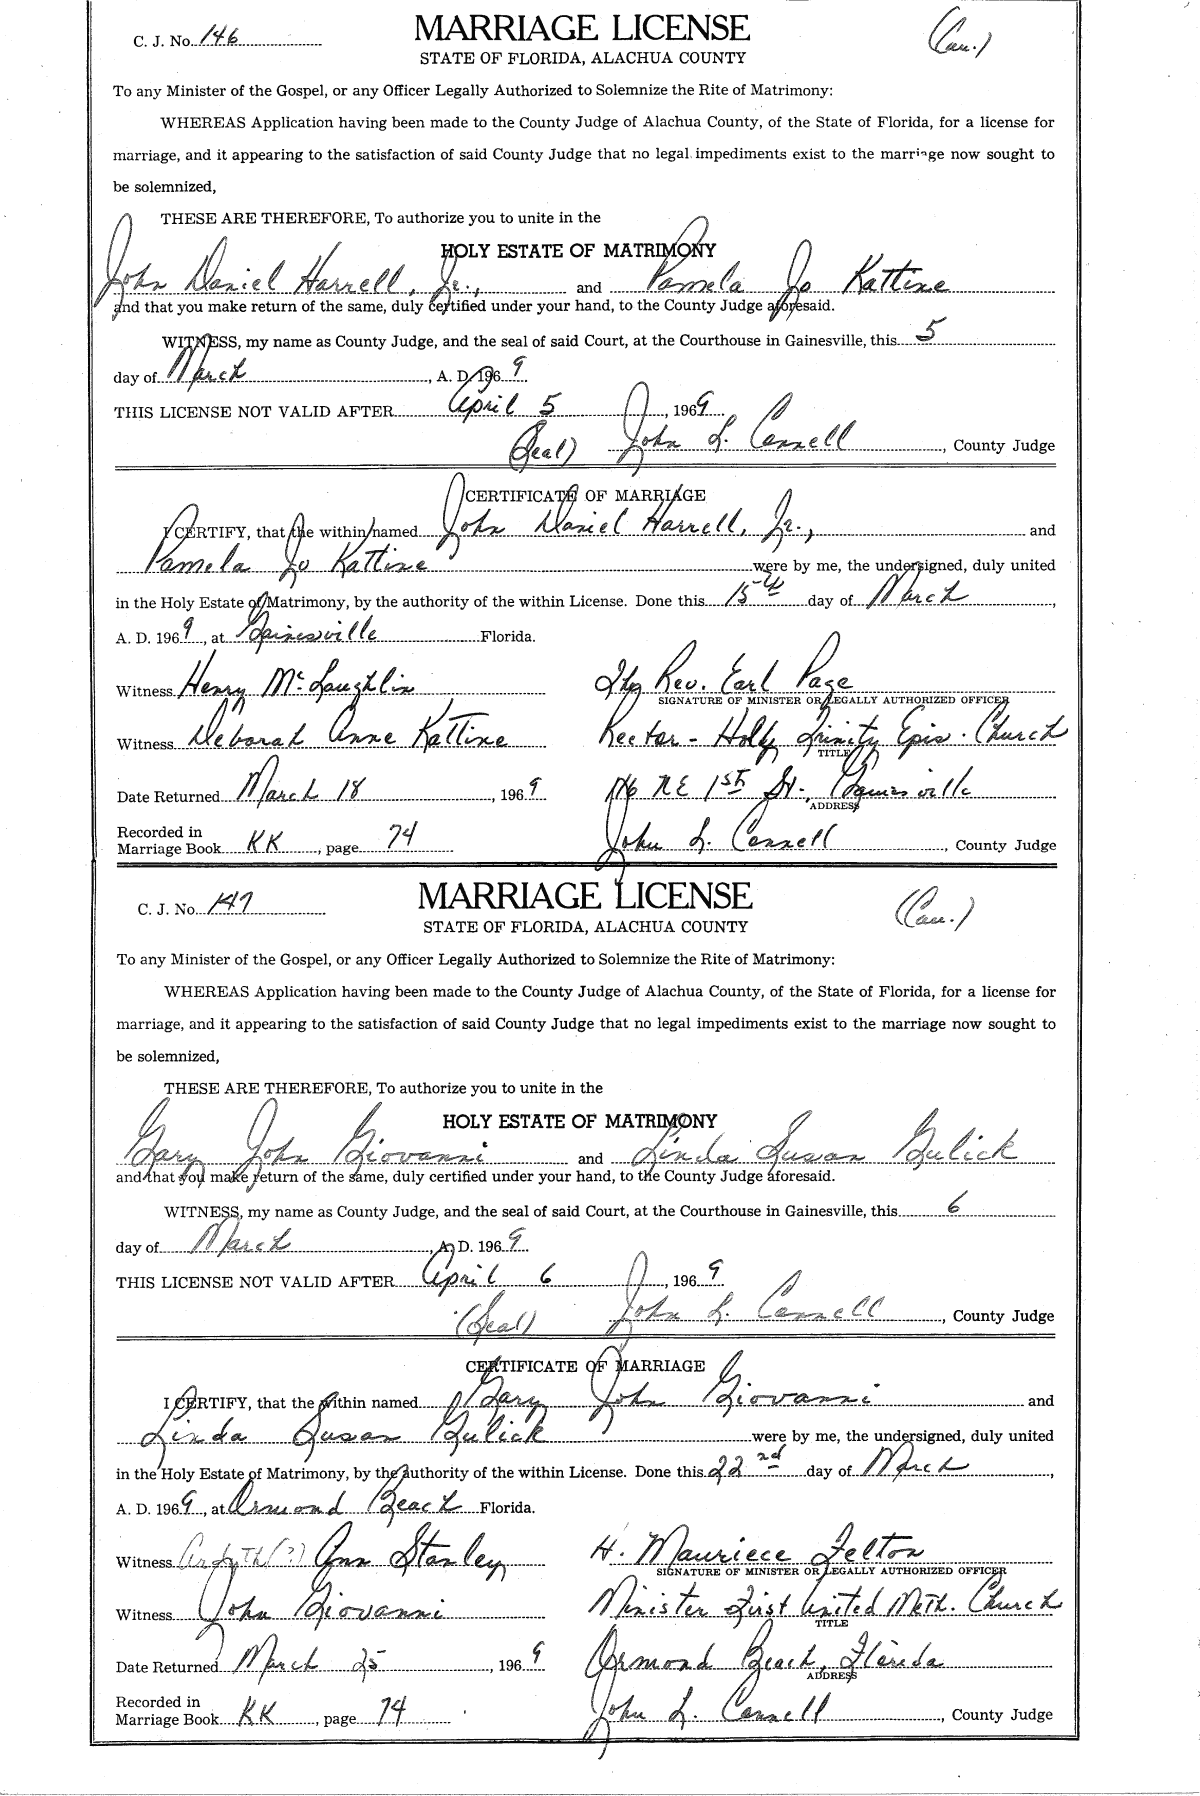 C. J. No. 146 MARRIAGE LICENSE (Cau.)
STATE OF FLORIDA, ALACHUA COUNTY
To any Minister of the Gospel, or any Officer Legally Authorized to Solemnize the Rite of Matrimony:
WHEREAS Application having been made to the County Judge of Alachua County, of the State of Florida, for a license for
marriage, and it appearing to the satisfaction of said County Judge that no legal impediments exist to the marriage now sought to
be solemnized,
THESE ARE THEREFORE, To authorize you to unite in the
HOLY ESTATE OF MATRIMONY
John Daniel Harrell, Jr., and Pamela Jo Kattine
and that you make return of the same, duly certified under your hand, to the County Judge aforesaid.
WITNESS, my name as County Judge, and the seal of said Court, at the Courthouse in Gainesville, this 5
day of March, A. D. 196 9
THIS LICENSE NOT VALID AFTER April 5, 1969
(Seal) John L. Connell, County Judge
CERTIFICATE OF MARRIAGE
I CERTIFY, that the within named John Daniel Harrell, Jr., and
Pamela Jo Kattine were by me, the undersigned, duly united
in the Holy Estate of Matrimony, by the authority of the within License. Done this 15th day of March,
A. D. 196 9, at Gainesville Florida.
Witness Henry McLaughlin The Rev. Earl Page
SIGNATURE OF MINISTER OR LEGALLY AUTHORIZED OFFICER
Witness Deborah Anne Kattine Rector - Holy Trinity Epis. Church
TITLE
Date Returned March 18, 196 9 116 NE 1st St., Gainesville
ADDRESS
Recorded in
Marriage Book KK, page 74 John L. Connell, County Judge
C. J. No. 147 MARRIAGE LICENSE (Cau.)
STATE OF FLORIDA, ALACHUA COUNTY
To any Minister of the Gospel, or any Officer Legally Authorized to Solemnize the Rite of Matrimony:
WHEREAS Application having been made to the County Judge of Alachua County, of the State of Florida, for a license for
marriage, and it appearing to the satisfaction of said County Judge that no legal impediments exist to the marriage now sought to
be solemnized,
THESE ARE THEREFORE, To authorize you to unite in the
HOLY ESTATE OF MATRIMONY
Gary John Giovanni and Linda Susan Gulick
and that you make return of the same, duly certified under your hand, to the County Judge aforesaid.
WITNESS, my name as County Judge, and the seal of said Court, at the Courthouse in Gainesville, this 6
day of March, A. D. 196 9
THIS LICENSE NOT VALID AFTER April 6, 196 9
(Seal) John L. Connell, County Judge
CERTIFICATE OF MARRIAGE
I CERTIFY, that the within named Gary John Giovanni and
Linda Susan Gulick were by me, the undersigned, duly united
in the Holy Estate of Matrimony, by the authority of the within License. Done this 22nd day of March,
A. D. 196 9, at Ormond Beach Florida.
Witness Ardyth(?) Ann Stanley H. Mauriece Felton
SIGNATURE OF MINISTER OR LEGALLY AUTHORIZED OFFICER
Witness John Giovanni Minister First United Meth. Church
TITLE
Date Returned March 25, 196 9 Ormond Beach, Florida
ADDRESS
Recorded in
Marriage Book KK, page 74 John L. Connell, County Judge